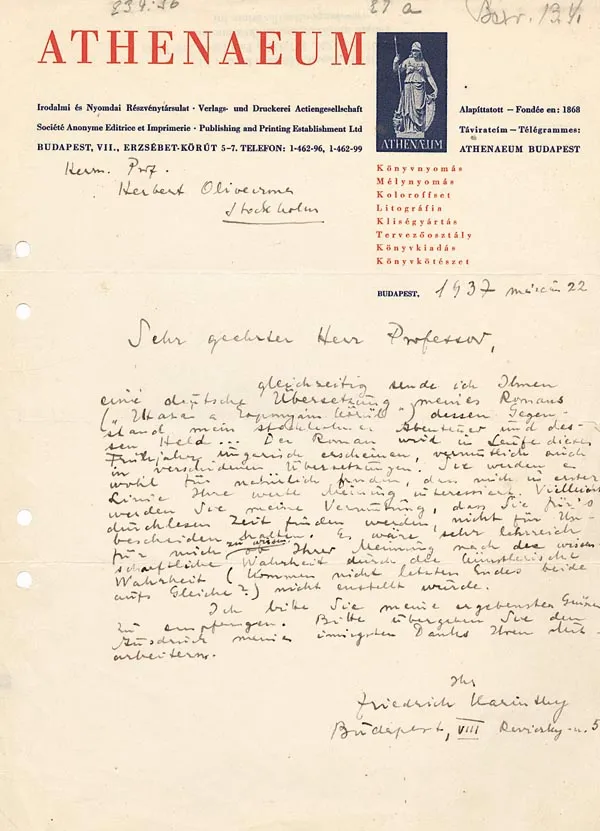 234:36 27 a Bev. 13 4/1
ATHENAEUM
ATHENÆUM
Irodalmi és Nyomdai Részvénytársulat · Verlags- und Druckerei Actiengesellschaft
Société Anonyme Editrice et Imprimerie · Publishing and Printing Establishment Ltd
BUDAPEST, VII., ERZSÉBET-KÖRÚT 5-7. TELEFON: 1-462-96, 1-462-99
Alapíttatott — Fondée en: 1868
Táviratcím — Télégrammes:
ATHENAEUM BUDAPEST
Herrn. Prof.
Herbert Olivecrona
Stockholm
Könyvnyomás
Mélynyomás
Koloroffset
Litográfia
Kliségyártás
Tervezőosztály
Könyvkiadás
Könyvkötészet
BUDAPEST, 1937 március 22
Sehr geehrter Herr Professor,
gleichzeitig sende ich Ihnen
eine deutsche Übersetzung meines Romans
("Utazás a koponyám körül") dessen Gegen-
stand mein stockholmer Abenteuer und des-
sen Held... Der Roman wird im Laufe dieses
Frühjahrs ungarisch erscheinen, vermutlich auch
in verschiedenen Übersetzungen. Sie werden es
wohl für natürlich finden, dass mich in erster
Linie Ihre werte Meinung interessiert. Vielleicht
werden Sie meine Vermutung, dass Sie für's
durchlesen Zeit finden werden, nicht für Un-
bescheiden halten. Es wäre sehr lehrreich
für mich zu wissen ob Ihrer Meinung nach die wissen-
schaftliche Wahrheit durch die künstlerische
Wahrheit (kommen nicht letzten Endes beide
aufs Gleiche?) nicht enstellt würde.
Ich bitte Sie meine ergebensten Grüsse
zu empfangen. Bitte übergeben Sie den
Ausdruck meines innigsten Danks Ihren Mit-
arbeitern.
Ihr
Friedrich Karinthy
Budapest, VIII Reviczky-u. 5